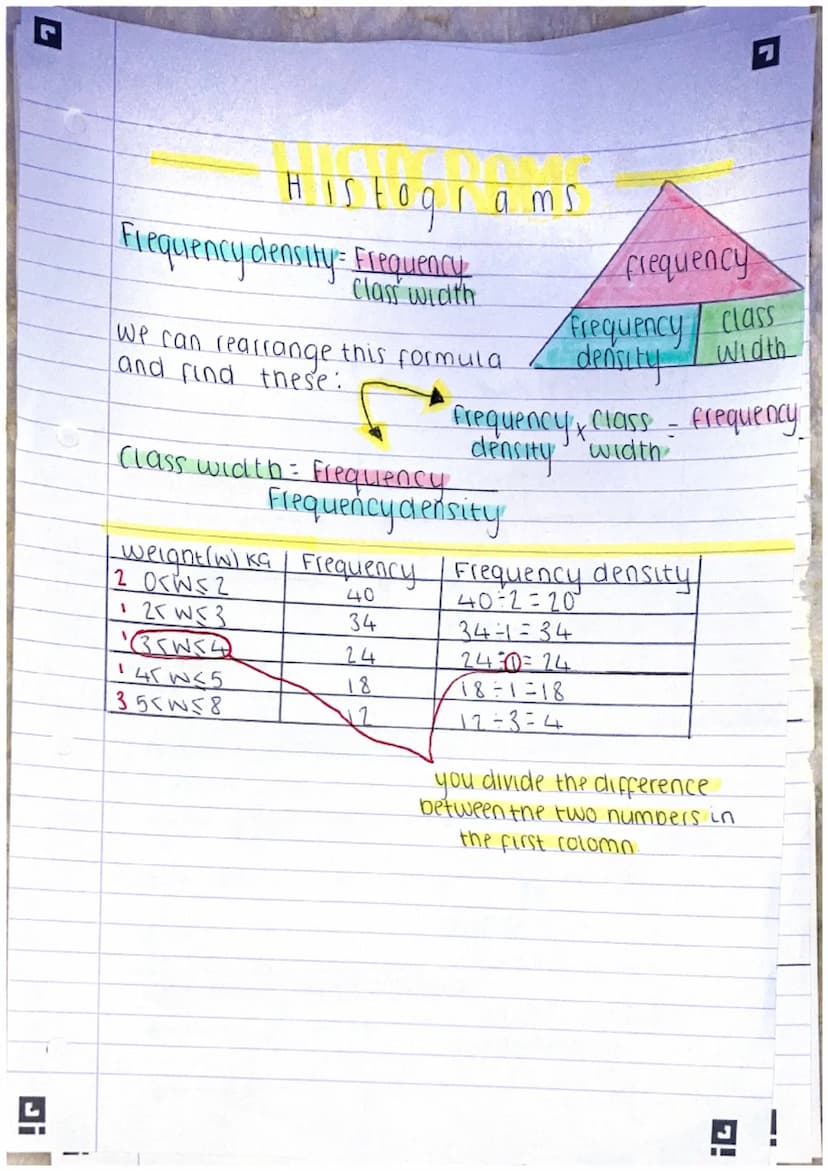 HISTOGRAMS
Histograms
Frequency density = Frequency
Class width
frequency
frequency density
class width
we can rearrange this formula
and find these:
frequency density x class width = frequency
Class width = Frequency
Frequency density
Weight(w) KG Frequency Frequency density
2 0<W≤2 40 40÷2=20
1 2<W≤3 34 34÷1=34
1 3<W≤4 24 24÷1=24
1 4<W≤5 18 18÷1=18
3 5<W≤8 12 12÷3=4
you divide the difference
between the two numbers in
the first colomn